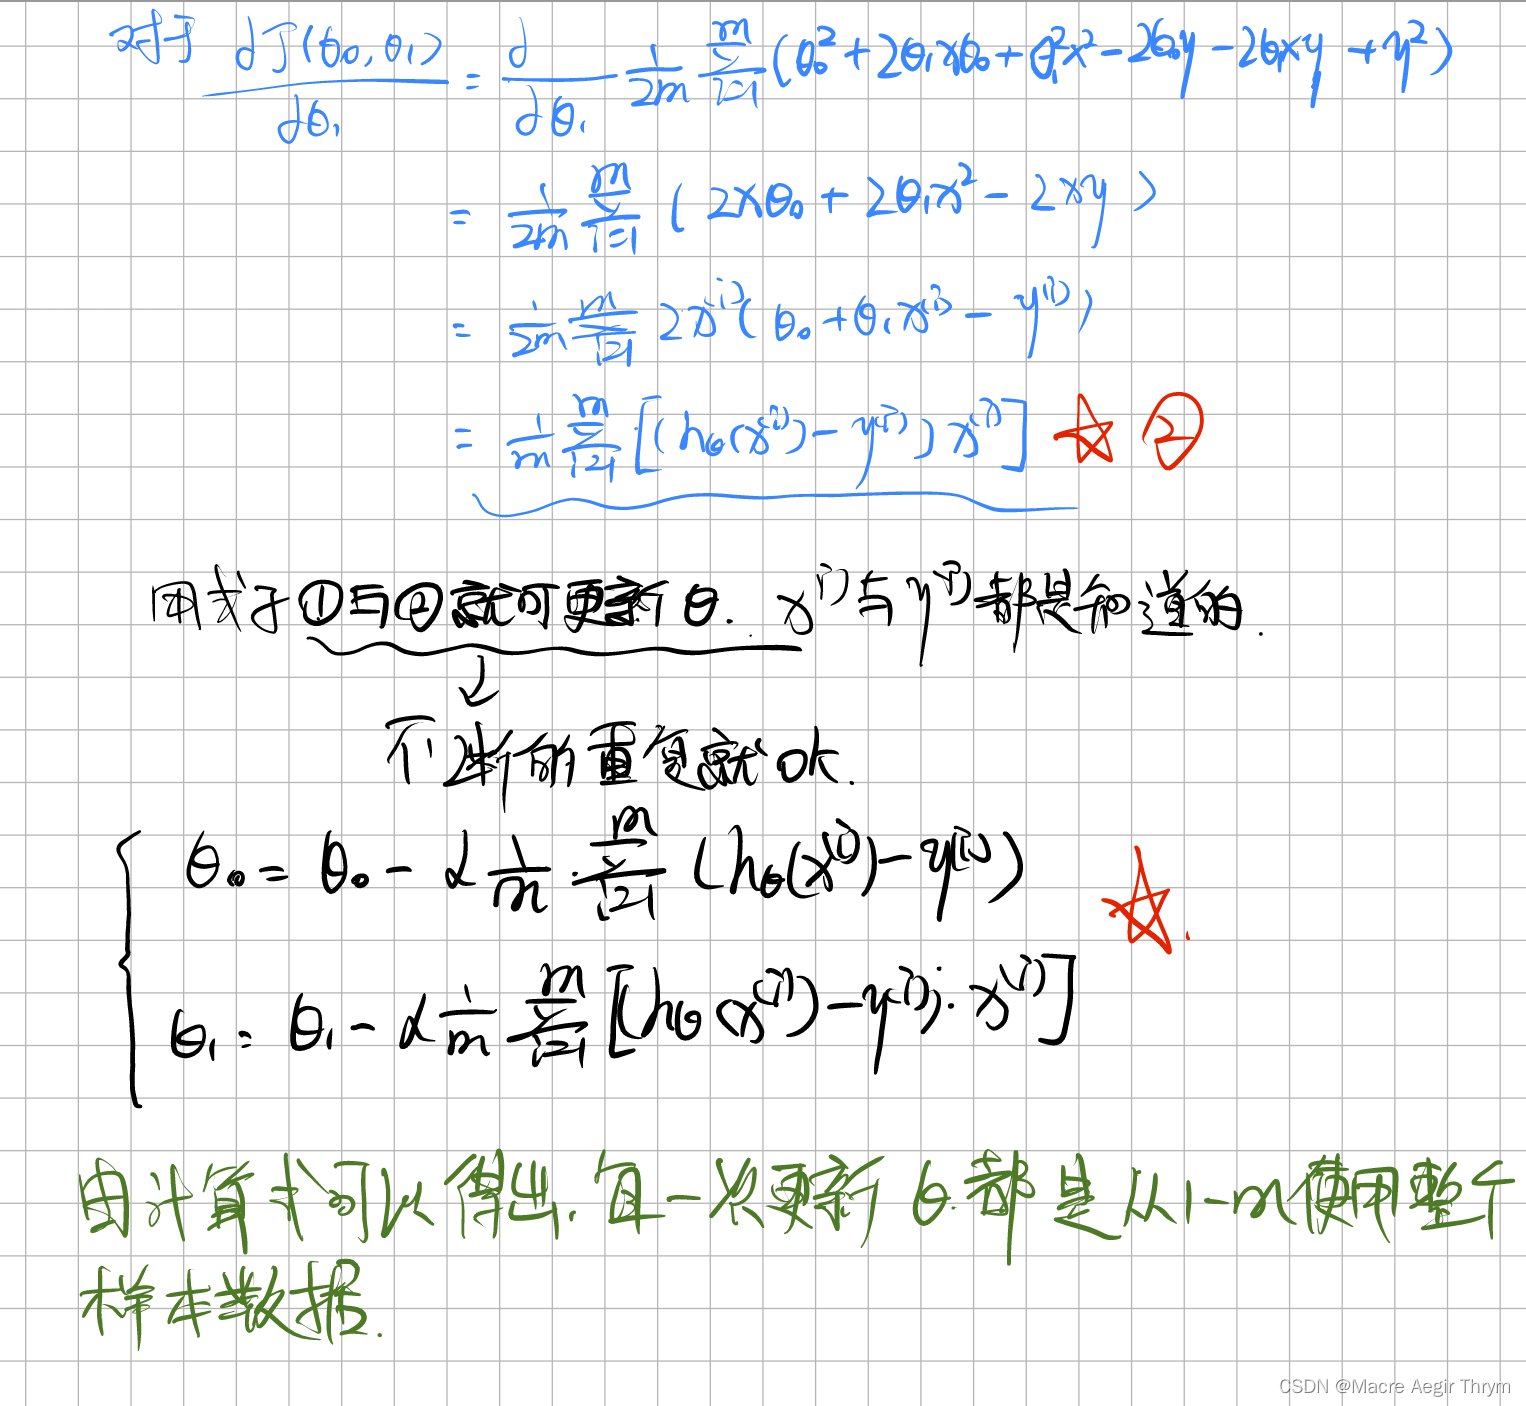 对于 ∂J(θ₀,θ₁)/∂θ₁ = ∂/∂θ₁ 1/2m ∑_{i=1}^{m} (θ₀² + 2θ₁xθ₀ + θ₁²x² - 2θ₀y - 2θ₁xy + y²)
= 1/2m ∑_{i=1}^{m} (2xθ₀ + 2θ₁x² - 2xy)
= 1/2m ∑_{i=1}^{m} 2x⁽ⁱ⁾(θ₀ + θ₁x⁽ⁱ⁾ - y⁽ⁱ⁾)
= 1/m ∑_{i=1}^{m} [(h_θ(x⁽ⁱ⁾) - y⁽ⁱ⁾) x⁽ⁱ⁾] ☆ ②
用式子①与②就可更新θ. x⁽ⁱ⁾与y⁽ⁱ⁾都是知道的.
↓
不断的重复就ok.
θ₀ = θ₀ - α 1/m · ∑_{i=1}^{m} (h_θ(x⁽ⁱ⁾) - y⁽ⁱ⁾) ☆.
θ₁ = θ₁ - α 1/m ∑_{i=1}^{m} [(h_θ(x⁽ⁱ⁾) - y⁽ⁱ⁾) · x⁽ⁱ⁾]
由计算式可以得出, 每一次更新θ.都是从1-m使用整个
样本数据.
CSDN @Macre Aegir Thrym